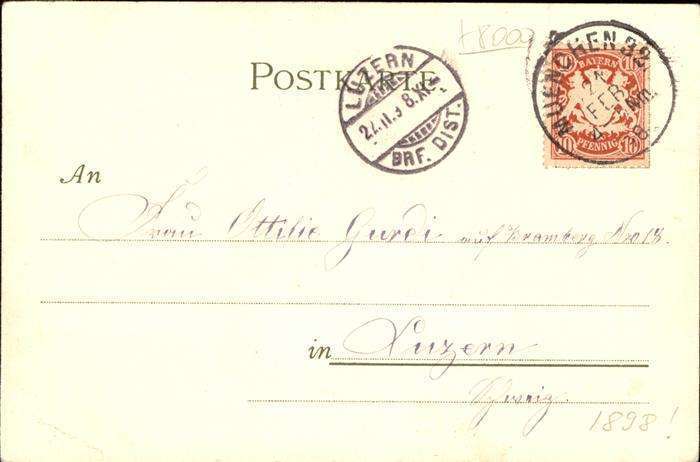 +8000
POSTKARTE
LUZERN
22.II.9 8.XI
BRF. DIST.
MUENCHEN 32
FEB
4 Nm.
8
BAYERN
10 10
PFENNIG
An
Frau Ottilie Gurdi auf Bramberg No 13.
in Luzern
Schweiz.
1898!